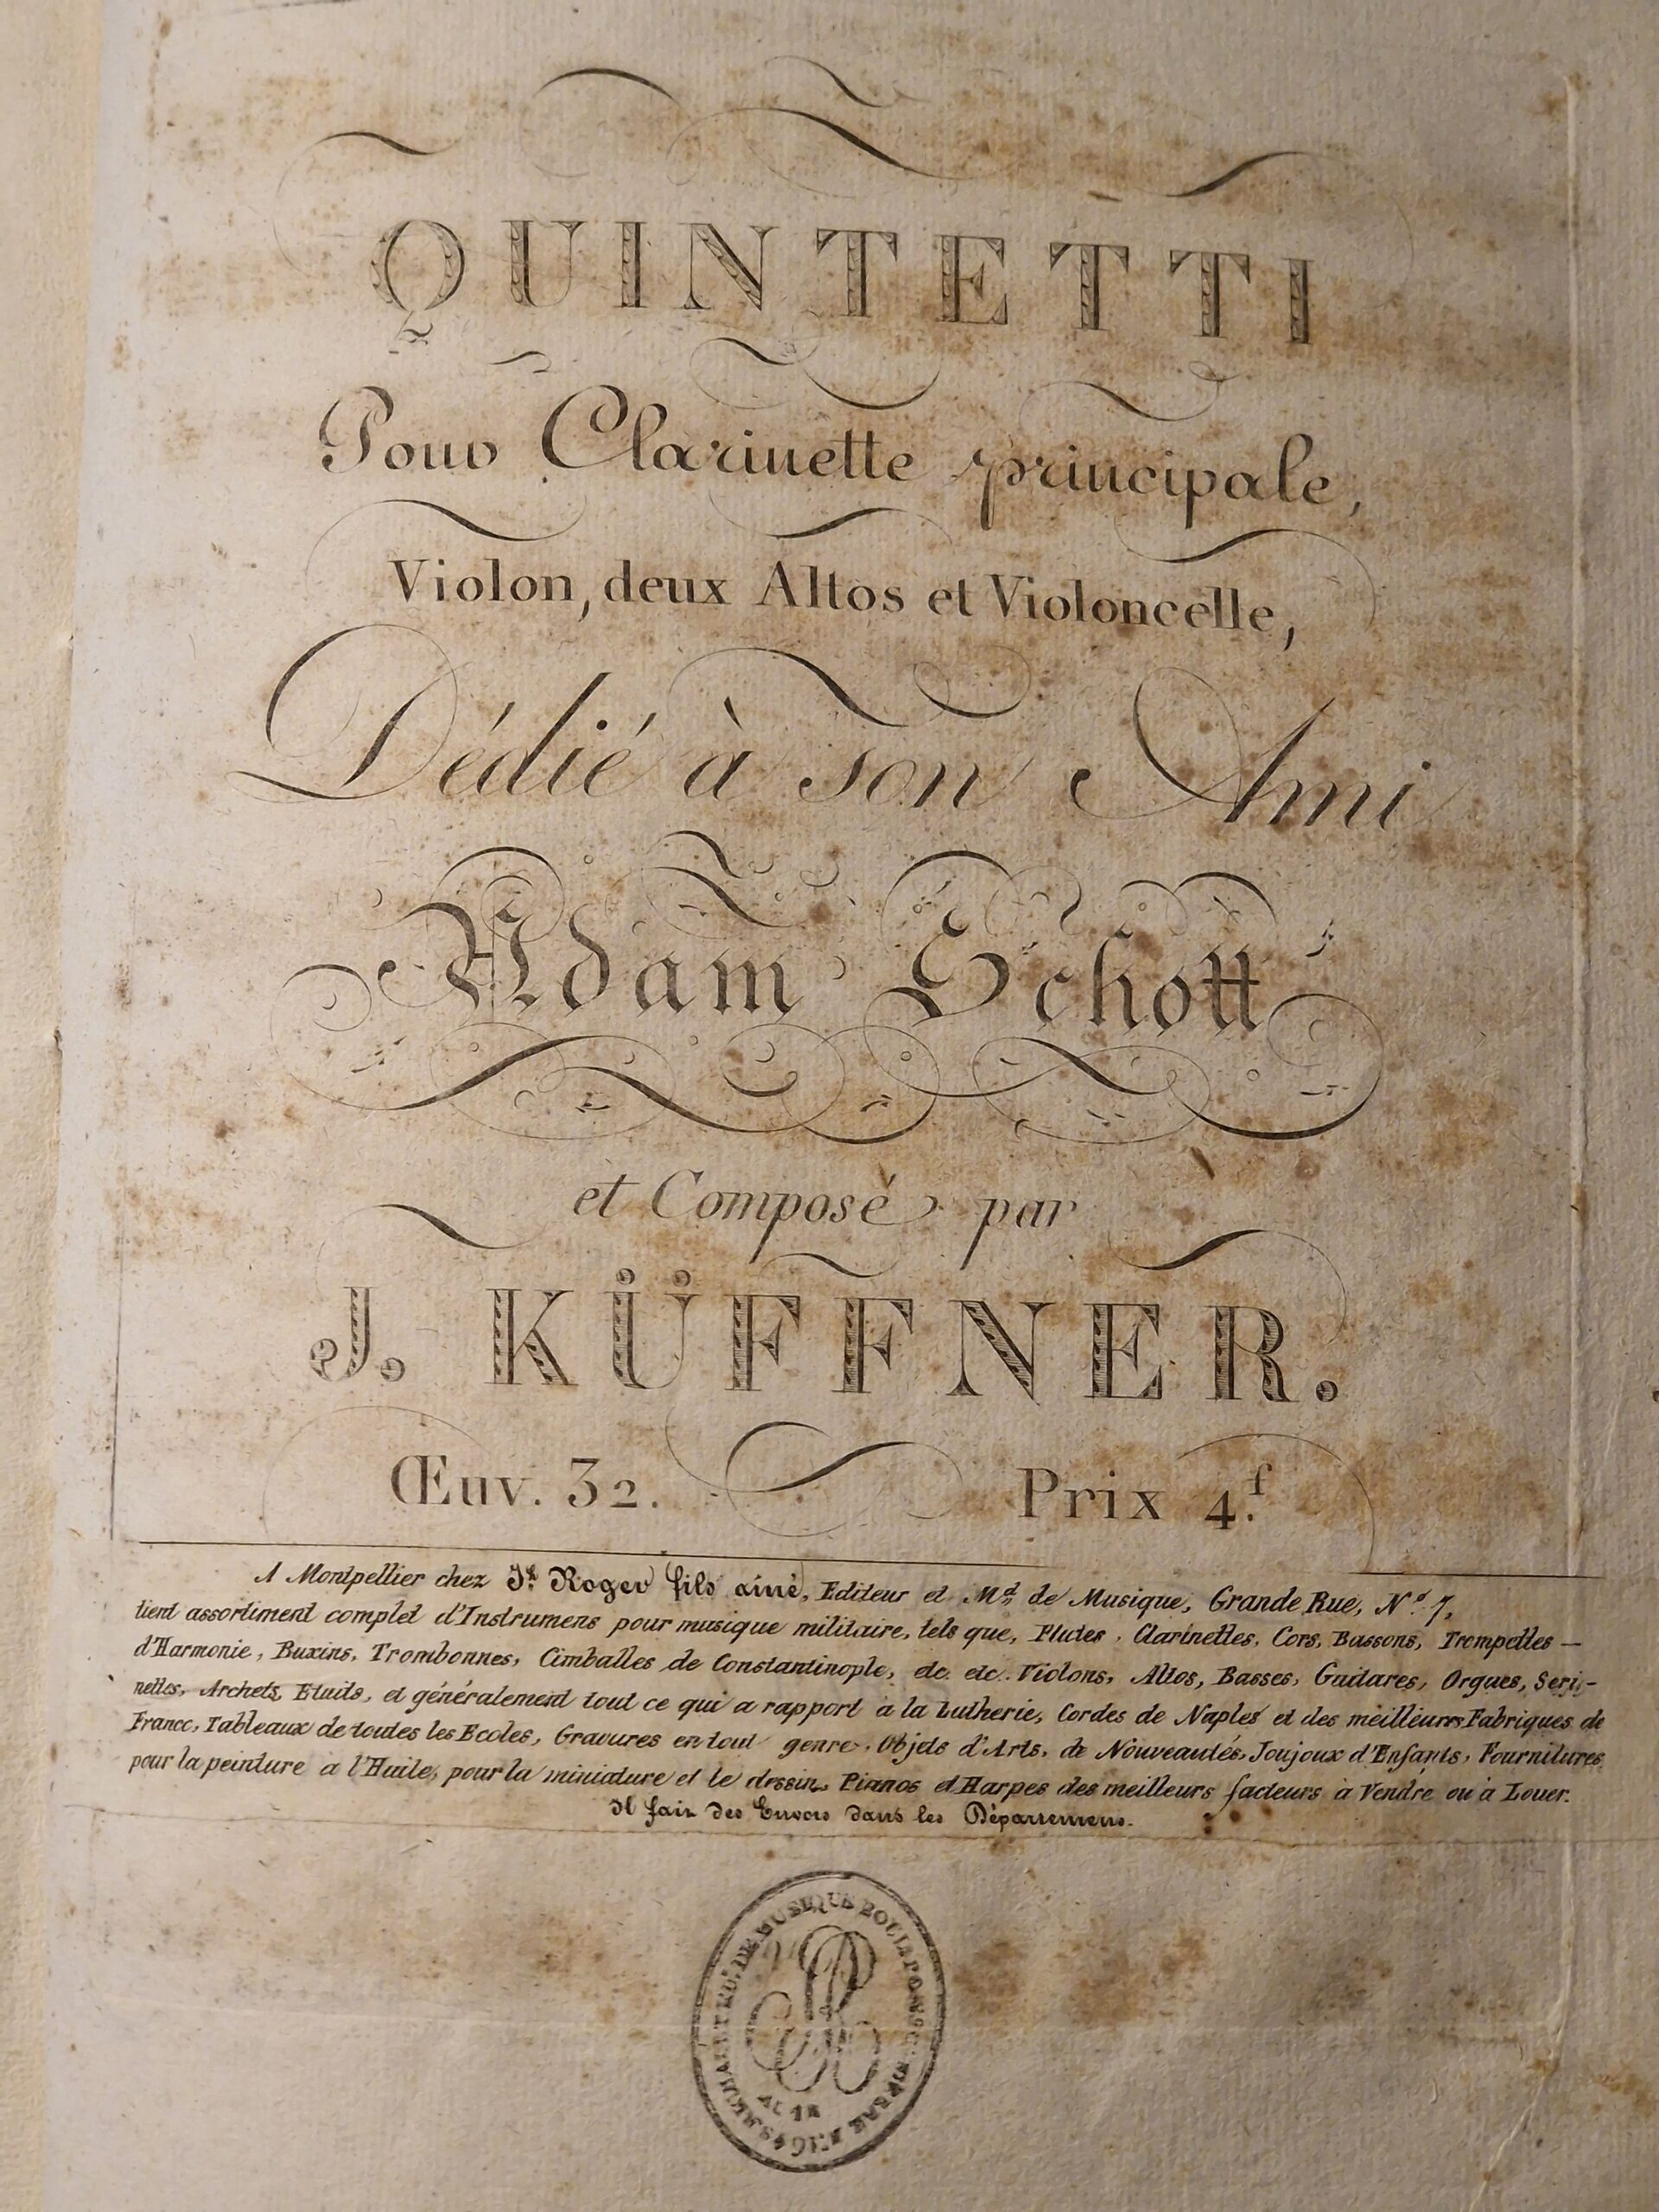 QUINTETTI
Pour Clarinette principale,
Violon, deux Altos et Violoncelle,
Dédié à son Ami
Adam Schott
et Composé par
J. KÜFFNER.
Œuv. 32. Prix 4.f
A Montpellier chez Roger fils aîné, Editeur et Md. de Musique, Grande Rue, No. 7,
tient assortiment complet d'Instrumens pour musique militaire, tels que, Flutes, Clarinettes, Cors, Bassons, Trompettes —
d'Harmonie, Buxins, Trombonnes, Cimballes de Constantinople, etc. etc. Violons, Altos, Basses, Guitares, Orgues, Seri-
nettes, Archets, Etuits, et généralement tout ce qui a rapport a la Lutherie, Cordes de Naples et des meilleures Fabriques de
France, Tableaux de toutes les Ecoles, Gravures en tout genre, Objets d'Arts, de Nouveautés, Joujoux d'Enfants, Fournitures
pour la peinture a l'Huile, pour la miniature et le dessin, Pianos et Harpes des meilleurs facteurs à Vendre ou à Louer.
Il fait des Envois dans les Départemens.
DE MUSIQUE